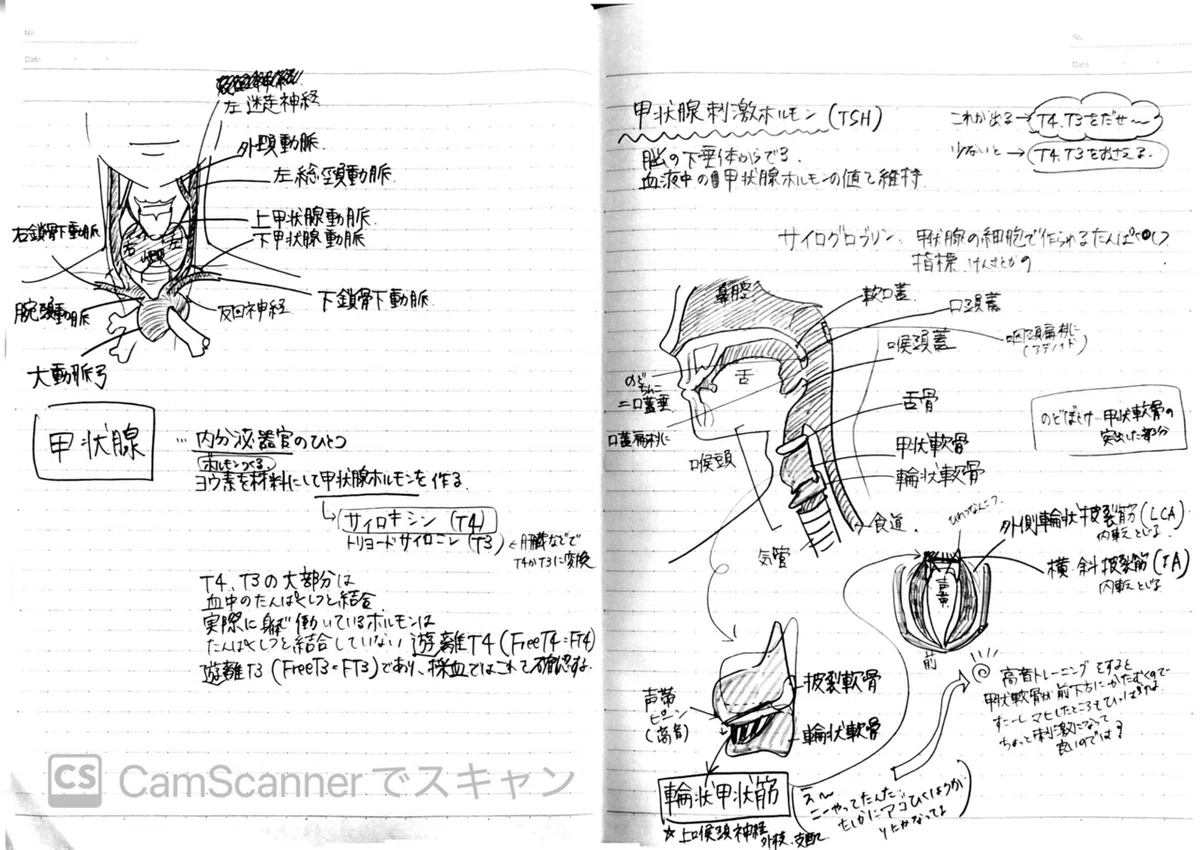 No.
Date
左迷走神経
外頸動脈
左総頸動脈
上甲状腺動脈
下甲状腺動脈
右鎖骨下動脈
右
左
下鎖骨下動脈
反回神経
腕頭動脈
大動脈弓
甲状腺
…内分泌器官のひとつ
ホルモンつくる
ヨウ素を材料にして甲状腺ホルモンを作る
サイロキシン (T4)
トリヨードサイロニン (T3) ← 肝臓などで
T4がT3に変換
T4、T3の大部分は
血中のたんぱくしつと結合
実際に身体で働いているホルモンは
たんぱくしつと結合していない 遊離T4 (FreeT4=FT4)
遊離T3 (FreeT3=FT3)であり、採血ではこれで確認する
CS CamScanner でスキャン
No.
Date
甲状腺刺激ホルモン (TSH)
これが出る→ T4、T3をだせ〜
少ないと → T4、T3をおさえる
脳の下垂体からでる
血液中の甲状腺ホルモンの値を維持
サイログロブリン 甲状腺の細胞で作られるたんぱくしつ
指標 けんさとかの
鼻腔
軟口蓋
口頭蓋
喉頭蓋
咽頭扁桃に
(アデノイド)
のど
ちんこ
=口蓋垂
舌
舌骨
口蓋扁桃に
のどぼとけ…甲状軟骨の
突出した部分
喉頭
甲状軟骨
輪状軟骨
食道
気管
ひれつなんこつ
外側輪状披裂筋 (LCA)
内転 とじる
横・斜披裂筋 (IA)
内転 とじる
声帯
前
高音トレーニングをすると
甲状軟骨が前下方にかたむくので
すこーしマヒしたところもひっぱられ
ちょっと刺激になって
良いのでは?
声帯
ピーン
(高音)
披裂軟骨
輪状軟骨
輪状甲状筋
☆上喉頭神経
外枝 支配
え〜
こーやってたんだ…
たしかにアゴひくほうが